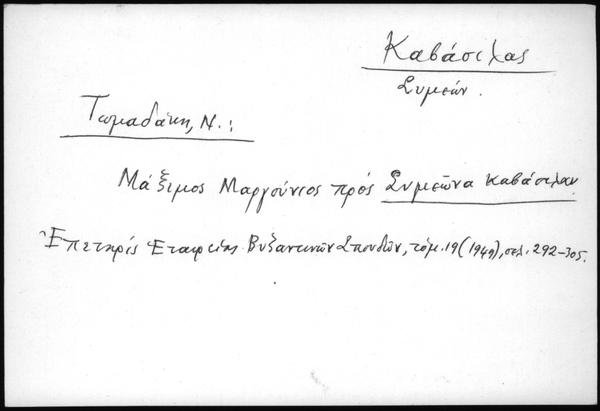 Καβάσιλας
Συμεών.
Τωμαδάκη, Ν.:
Μάξιμος Μαργούνιος πρός Συμεῶνα Καβάσιλαν
Ἐπετηρίς Ἑταιρείας Βυζαντινῶν Σπουδῶν, τόμ. 19 (1949), σελ. 292-305.